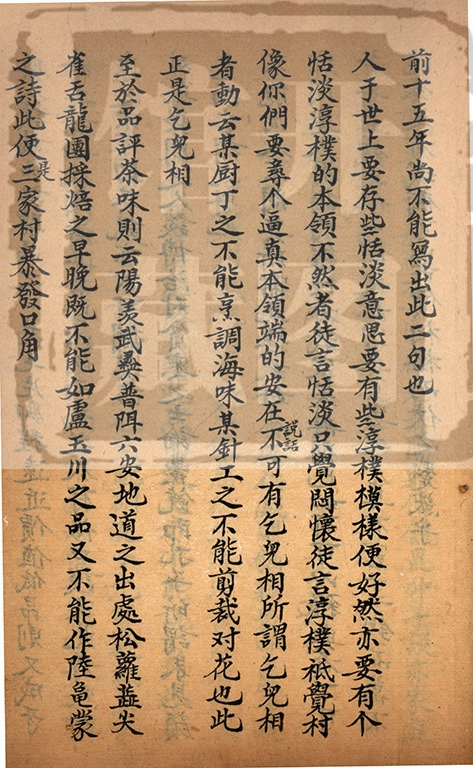 前十五年尚不能寫出此二句也
人于世上要存些恬淡意思要有些淳樸模樣便好然亦要有个
恬淡淳樸的本領不然者徒言恬淡只覺悶懷徒言淳樸祗覺村
像你們要尋个逼真本領端的安在說話不可有乞兒相所謂乞兒相
者動云某厨丁之不能烹調海味某針工之不能剪裁对花也此
正是乞兒相
至於品評茶味則云陽羨武彝普洱六安地道之出處松蘿蓝尖
雀舌龍團採焙之早晚既不能如盧玉川之品又不能作陸龜蒙
之詩此便是三家村暴發口角